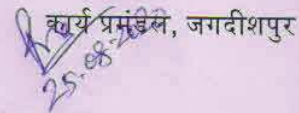 कार्य प्रमंडल, जगदीशपुर
25.08.20